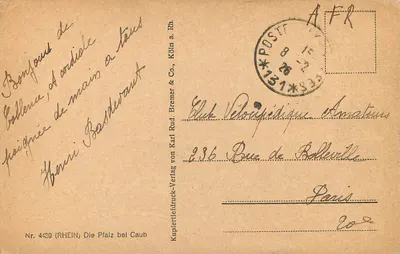 Bonjour de
Coblence, et cordiale
poignée de mains a tous
Henri Bastevant
Nr. 4429 (RHEIN) Die Pfalz bei Caub
Kupfertiefdruck-Verlag von Karl Rud. Bremer & Co., Köln a. Rh.
A F R
*POSTE
15
8 -2
26
*131*
Club Vélocipédique Amateurs
236 Rue de Belleville
Paris
20e